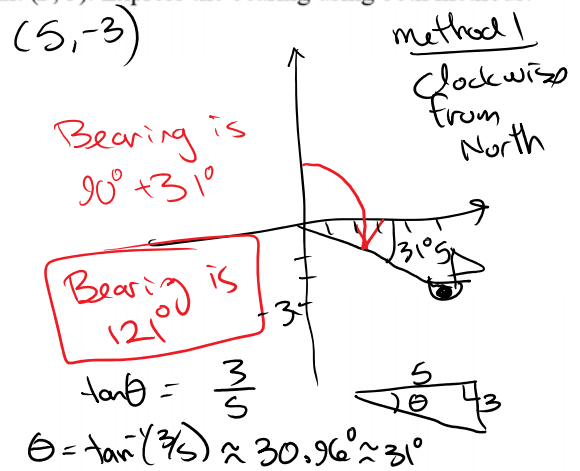 (5,-3)
method 1
Clockwise
from
North
Bearing is
90° + 31°
31°
5
Bearing is
121°
-3
tanθ = 3/5
5
θ
3
θ = tan⁻¹(3/5) ≈ 30.96° ≈ 31°